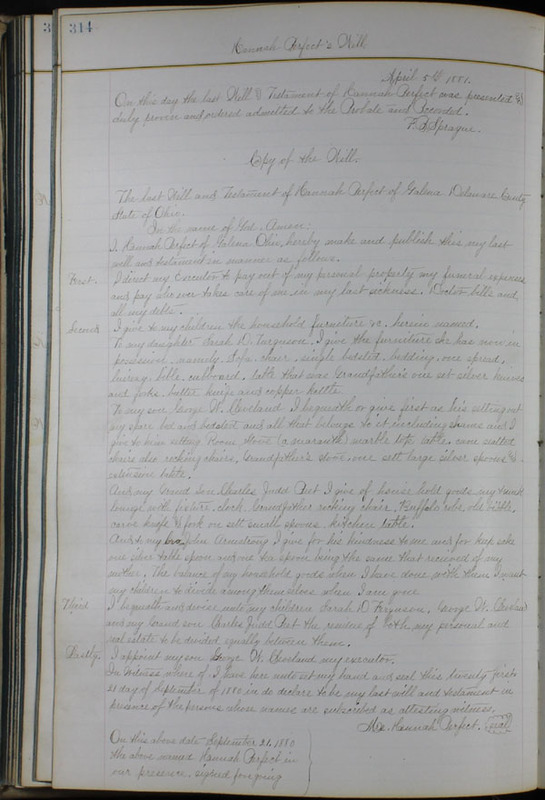 314
Hannah Perfect's Will.
April 5th 1881.
On this day the last Will & Testament of Hannah Perfect was presented &
duly proven and ordered admitted to the Probate and Recorded.
F. B. Sprague.
Copy of the Will.
The last Will and Testament of Hannah Perfect of Galena Delaware County
State of Ohio.
In the name of God. Amen:
I, Hannah Perfect of Galena Ohio, hereby make and publish this my last
will and testament in manner as follows.
First. I direct my Executor to pay out of my personal property my funeral expenses
and pay who ever takes care of me in my last sickness. Doctor bills and
all my debts.
Second I give to my children the household furniture &c. herein named.
To my daughter Sarah D. Furguson. I give the furniture she has now in
possession, namely Sofa, chair, single bedsted, bedding, one spred,
bible, cubboard, table that was Grandfather's one set silver knives
and forks, butter knife and copper kettle.
To my son George W. Cleveland I bequeath or give first as his setting out
my spare bed and bedsted and all that belongs to it including shams and I
give to him sitting Room Stove (a marantk) marble top table, cane seated
chairs also rocking chairs, Grandfather's stove one sett large silver spoons &
extension table.
And my Grand Son Charles Judd Put I give of house hold goods my trunk
lounge with fixture, clock, Grandfather rocking chair, Buffalo robe, old bible,
carve knife & fork one sett small spoons, kitchen table.
And to my bro. John Armstrong I give for his kindness to me and for keep sake
one silver table spoon and one tea spoon being the same that recieved of my
mother. The balance of my household goods when I have done with them I want
my children to divide among them selves when I am gone
Third I bequeath and devise unto my children Sarah D Fergusson, George W. Cleveland
and my Grand son Charles Judd Put the residue of both my personal and
real estate to be divided equally between them.
Lastly. I appoint my son George W. Cleveland my executor.
In witness where of I have here unto set my hand and seal this twenty first
21 day of September of 1880 in do declare to be my last will and testament in
presence of the persons whose names are subscribed as attesting witness.
Mrs. Hannah Perfect. seal
On this above date September 21. 1880
the above named Hannah Perfect in
our presence, signed foregoing